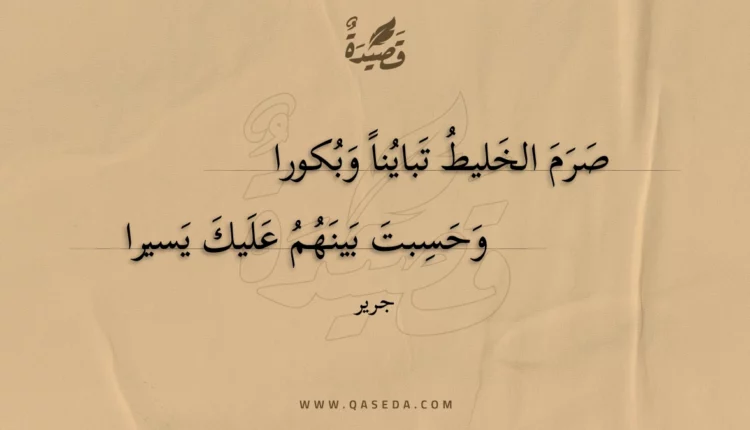 قَصِيدَةٌ
صَرَمَ الخَليطُ تَبايُناً وَبُكورا
وَحَسِبتَ بَينَهُمُ عَلَيكَ يَسيرا
جرير
WWW.QASEDA.COM